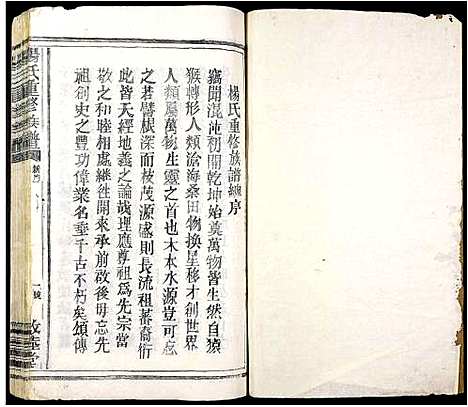 楊氏重修族譜總序
竊聞混沌初開乾坤始奠萬物皆生然自猿
猴轉形人類滄海桑田物換星移才創世界
人類屬萬物生靈之首也木本水源豈可忘
之若譬根深而枝茂源盛則長流祖蕃裔衍
此皆天經地義之論哉理應尊祖為先宗當
敬之和睦相處繼往開來承前啟後毋忘先
祖創史之豐功偉業名垂千古不朽矣頌傳
楊氏重修族譜
一號
敦睦堂